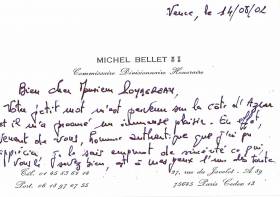 Vence, le 14/08/02
MICHEL BELLET
Commissaire Divisionnaire Honoraire
Bien cher Monsieur
Votre petit mot m'est parvenu sur la côte d'Azur
et il m'a procuré un immense plaisir. En effet,
venant de vous, homme authentique que j'ai pu
apprécier, je le sais empreint de sincérité ce qui,
vous le savez bien, est à mes yeux l'un des
Tél. 01 45
Port. 06
rue du Javelot - A 39
75645 Paris Cedex 13